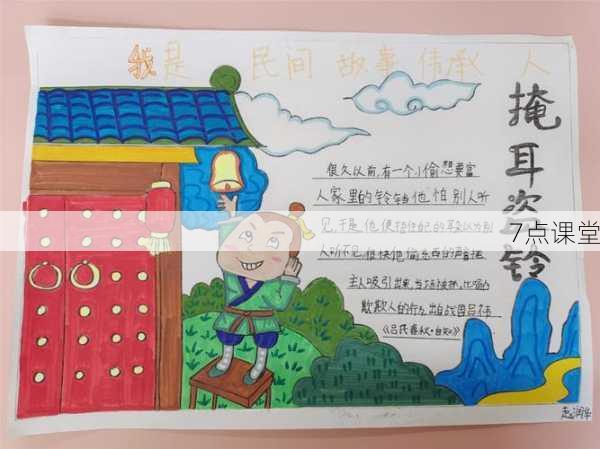 我是 民间 故事 传承 人
掩耳盗铃
很久以前,有一个小偷想要富
人家里的铃铛,他怕别人听
见,于是他便捂住自己的耳朵以为别
人听不见,很快他偷东西的声音把
主人吸引出来,当场被抓,比喻
欺欺人的行为,出自战国吕不
《吕氏春秋·自知》
7点课堂